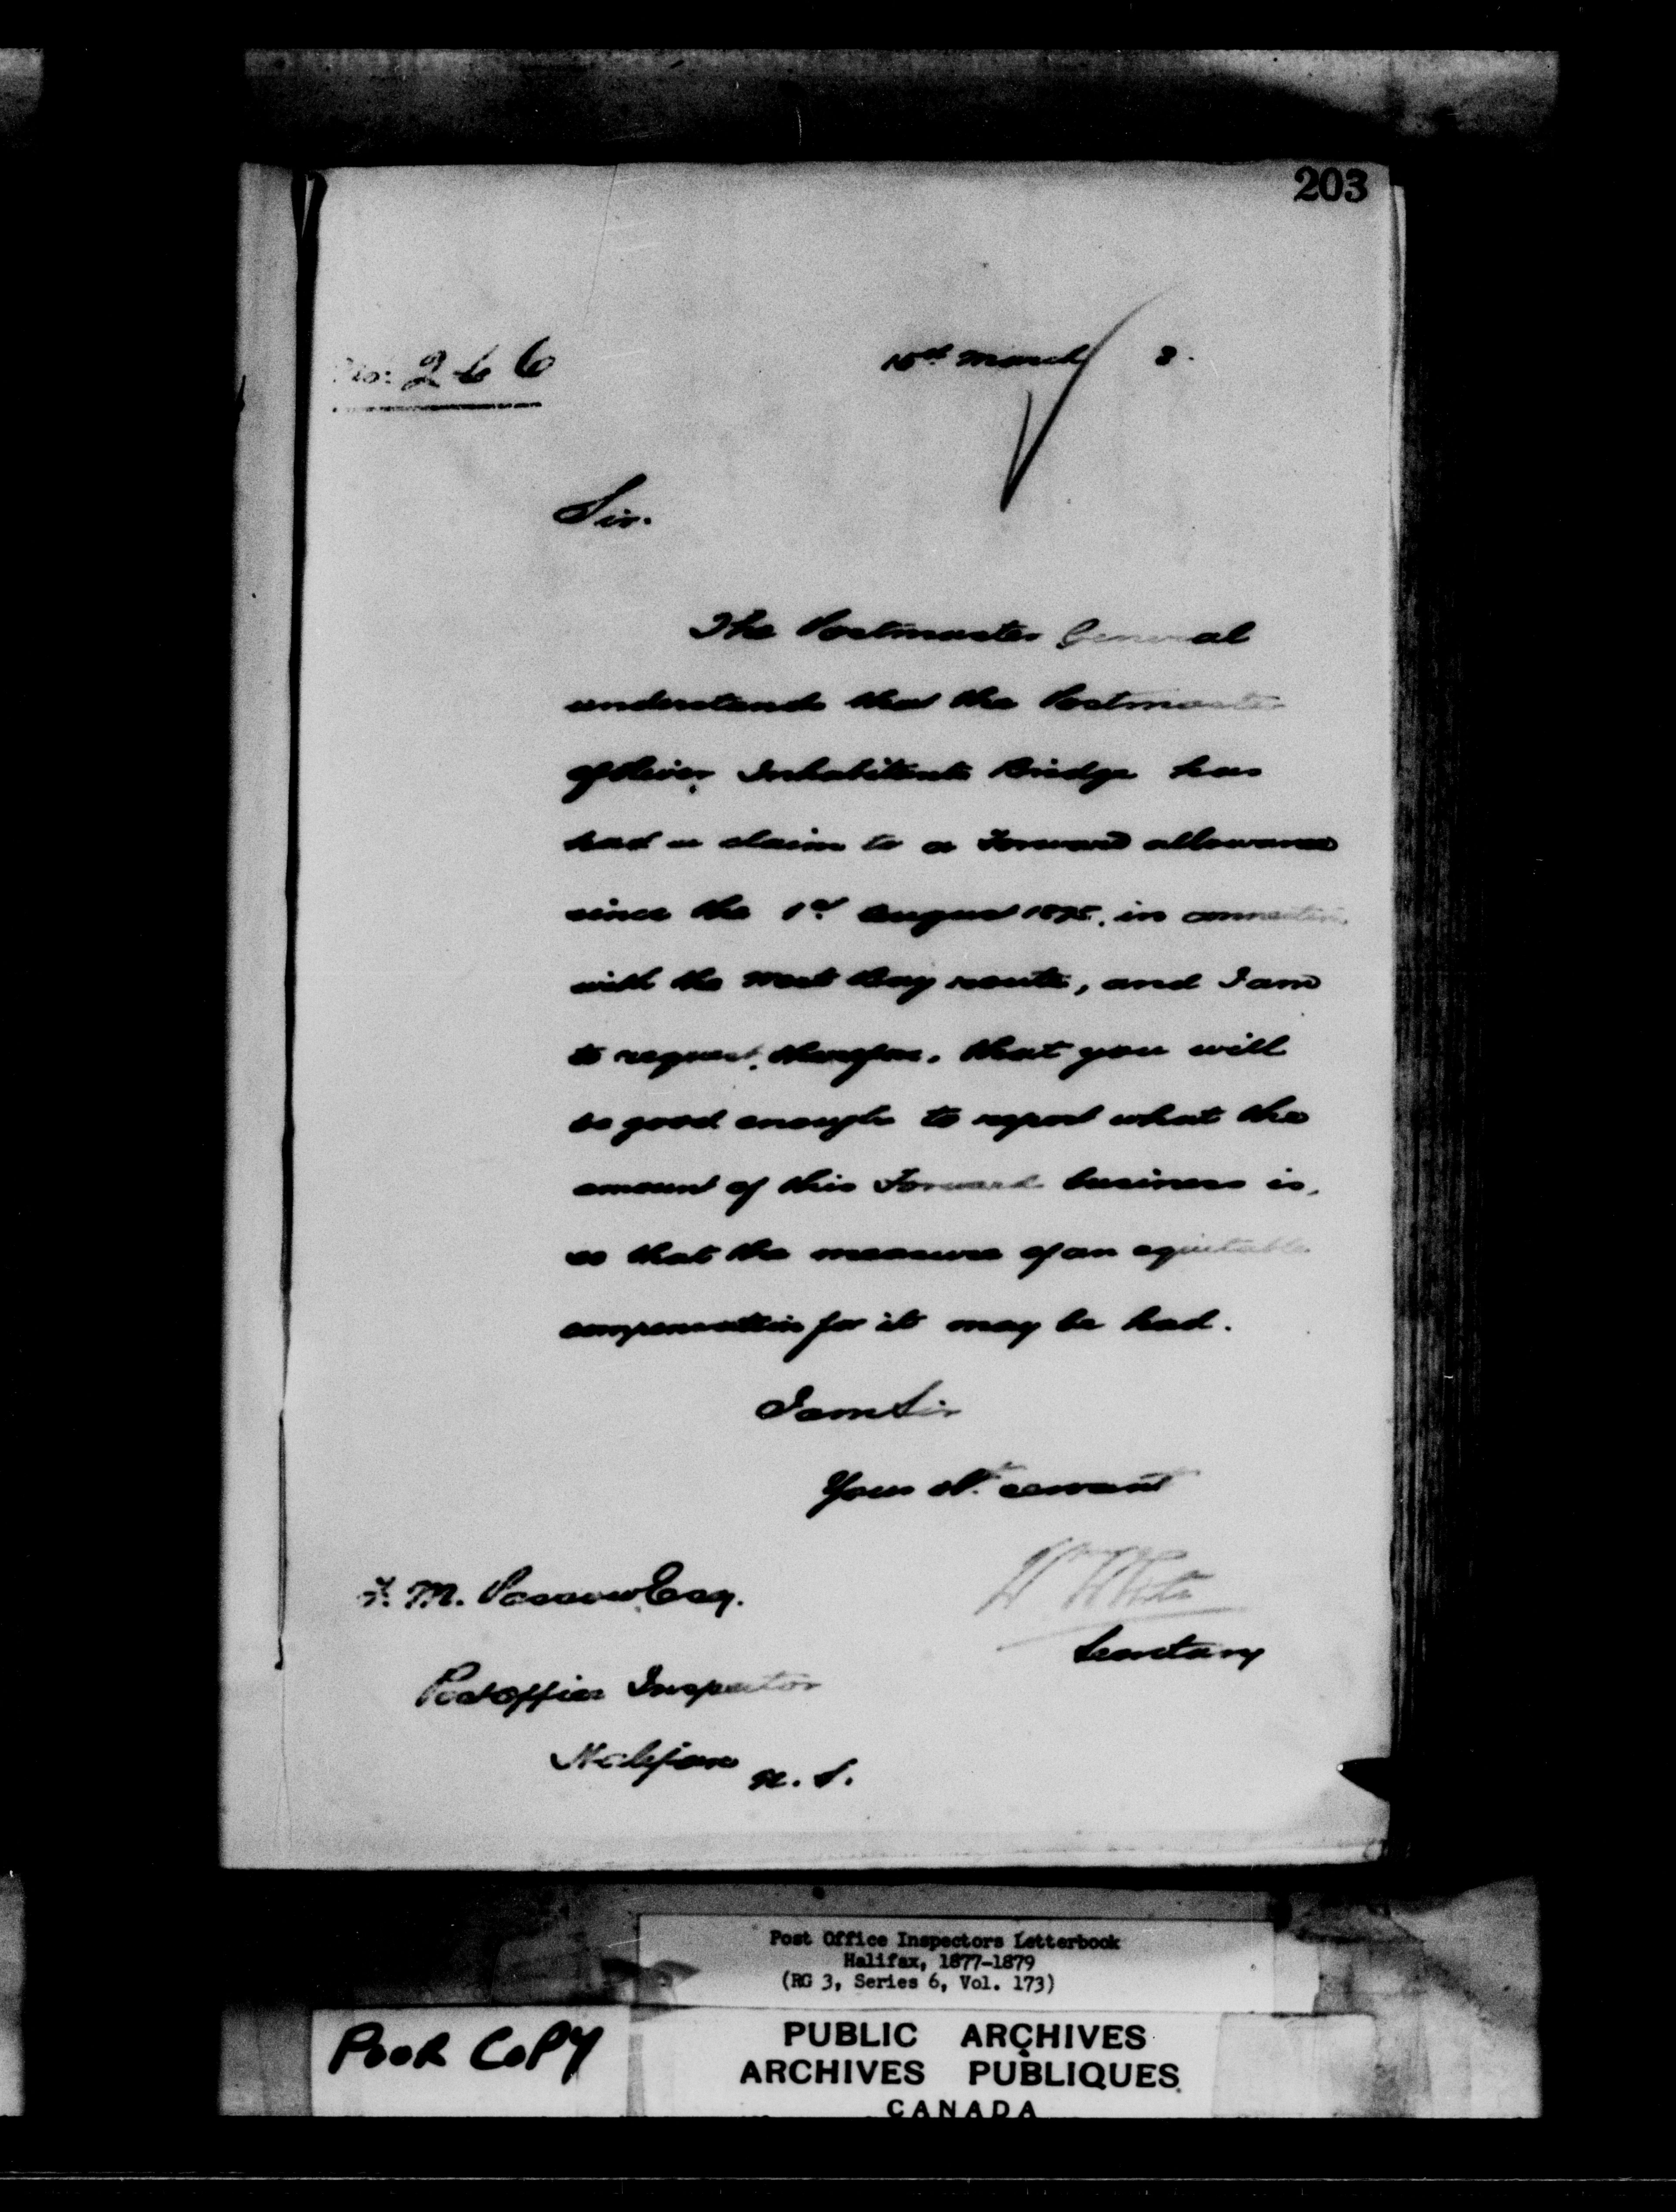 203
No: 266
15th March 8.
Sir.
The Postmaster General
understands that the Postmaster
of River Inhabitants Bridge has
had a claim to a Forward allowance
since the 1st August 1875, in connection
with the West Bay route, and I am
to request, therefore, that you will
be good enough to report what the
amount of this Forward business is,
so that the measure of an equitable
compensation for it may be had.
I am Sir
Your obt. servant
Wm White
Secretary
F. M. Passow Esq.
Post Office Inspector
Halifax N. S.
Post Office Inspectors Letterbook
Halifax, 1877-1879
(RG 3, Series 6, Vol. 173)
POOR COPY
PUBLIC ARCHIVES
ARCHIVES PUBLIQUES
CANADA